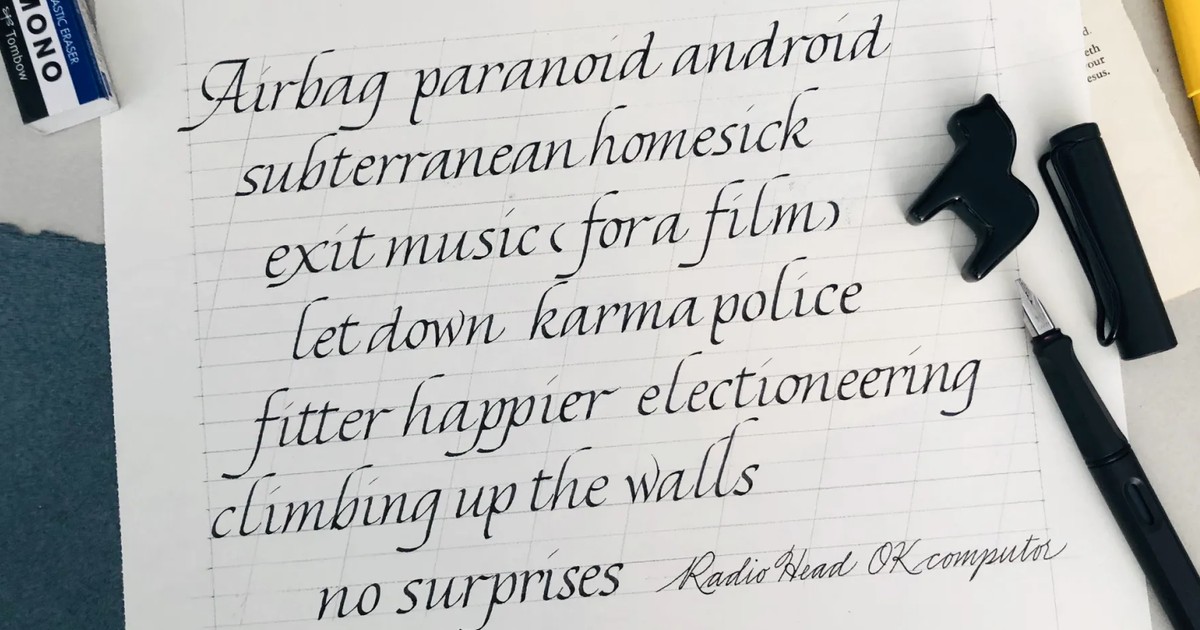 Airbag paranoid android
subterranean homesick
exit music (for a film)
let down karma police
fitter happier electioneering
climbing up the walls
no surprises
RadioHead OK computor
PLASTIC ERASER
MONO
Tombow
d.
eth
our
esus.